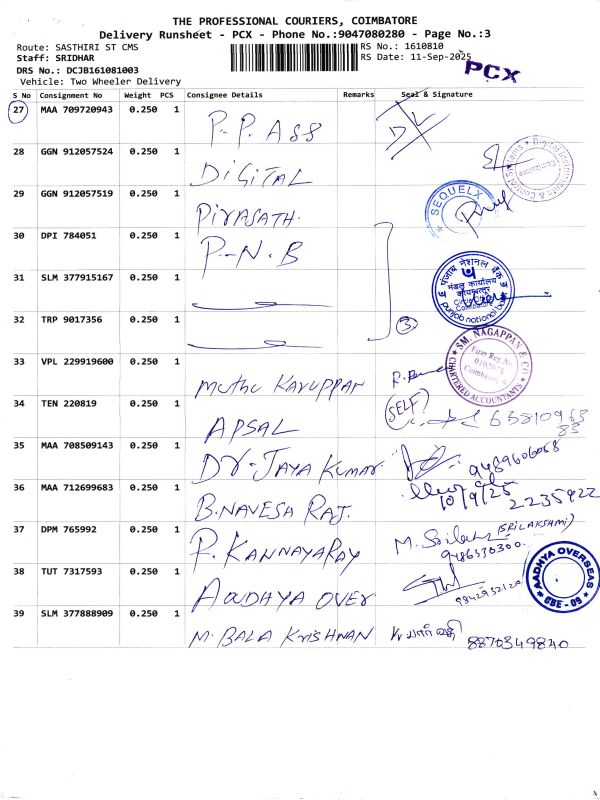 THE PROFESSIONAL COURIERS, COIMBATORE
Delivery Runsheet - PCX - Phone No.:9047080280 - Page No.:3
Route: SASTHIRI ST CMS RS No.: 1610810
Staff: SRIDHAR RS Date: 11-Sep-2025
PCX
DRS No.: DCJB161081003
Vehicle: Two Wheeler Delivery
S No Consignment No Weight PCS Consignee Details Remarks Seal & Signature
27 MAA 709720943 0.250 1 P-P. ASS DL
28 GGN 912057524 0.250 1 DIGITAL
29 GGN 912057519 0.250 1 PIYASATH. SEQUELX
30 DPI 784051 0.250 1 P-N.B
31 SLM 377915167 0.250 1 पंजाब नैशनल बैंक मंडल कार्यालय कोयम्बत्तूर punjab national bank
32 TRP 9017356 0.250 1 3
33 VPL 229919600 0.250 1 MUTHU KARUPPAN SM. NAGAPPAN & CO CHARTERED ACCOUNTANTS Firm Reg.No
34 TEN 220819 0.250 1 APSAL (SELF)
35 MAA 708509143 0.250 1 DR-JAYA KUMAR 9489606068
36 MAA 712699683 0.250 1 B.NAVESA RAJ. 10/9/25 2235922
37 DPM 765992 0.250 1 P. KANNAYARAY (SRILAKSHMI) 9486330300.
38 TUT 7317593 0.250 1 AADHYA OVER 9842952120 AADHYA OVERSEAS CBE-09
39 SLM 377888909 0.250 1 M. BALA KRISHNAN 8870349840